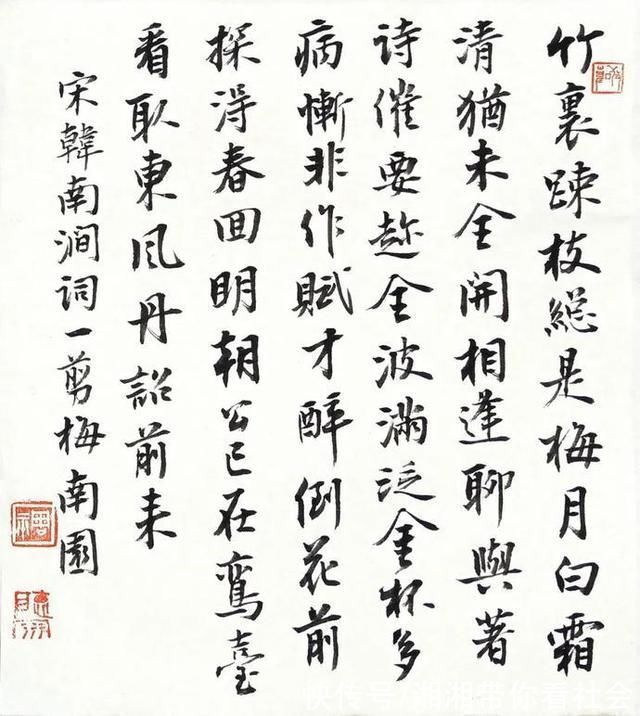 竹裏踈枝緫是梅月白霜
清猶未全開相逢聊與著
诗催要趂金波滿泛金杯多
病慚非作賦才醉倒花前
探得春回明朝公已在鸞臺
看取東風丹詔前来
宋韓南澗词一剪梅南園
快传号/湘湘带你看社会